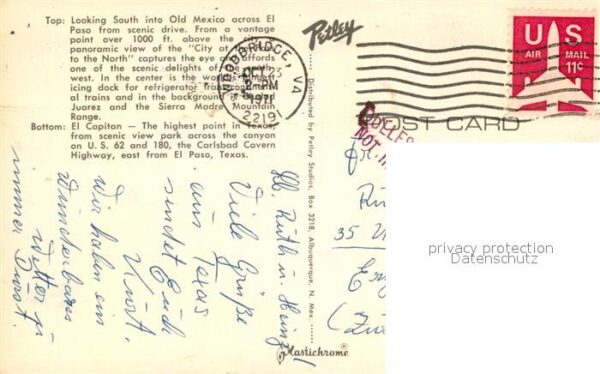 Top: Looking South into Old Mexico across El
Paso from scenic drive. From a vantage
point over 1000 ft. above the city a
panoramic view of the "City of the
to the North" captures the eye and affords
one of the scenic delights of the
west. In the center is the world's largest
icing dock for refrigerator transcontinental
trains and in the background is
Juarez and the Sierra Madre Mountain
Range.
Bottom: El Capitan — The highest point in Texas,
from scenic view park across the canyon
on U.S. 62 and 180, the Carlsbad Cavern
Highway, east from El Paso, Texas.
Petley
WOODBRIDGE, VA
OCT
PM
1971
22191
US
AIR MAIL
11¢
POST CARD
Distributed by Petley Studios, Box 3218, Albuquerque, N. Mex.
Plastichrome®
Lb. Ruth u. Heinz!
Viele Grüße
aus Texas
sendet Euch
Kurt.
Wir haben ein
wunderbares
Wetter u.
immer Durst.
35
privacy protection
Datenschutz